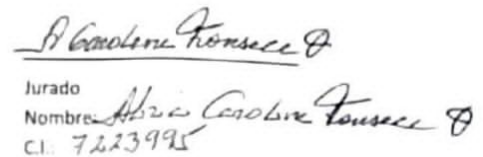 A Carolina Fonseca O
Jurado
Nombre: Alizia Carolina Fonseca O
C.I.: 7223995